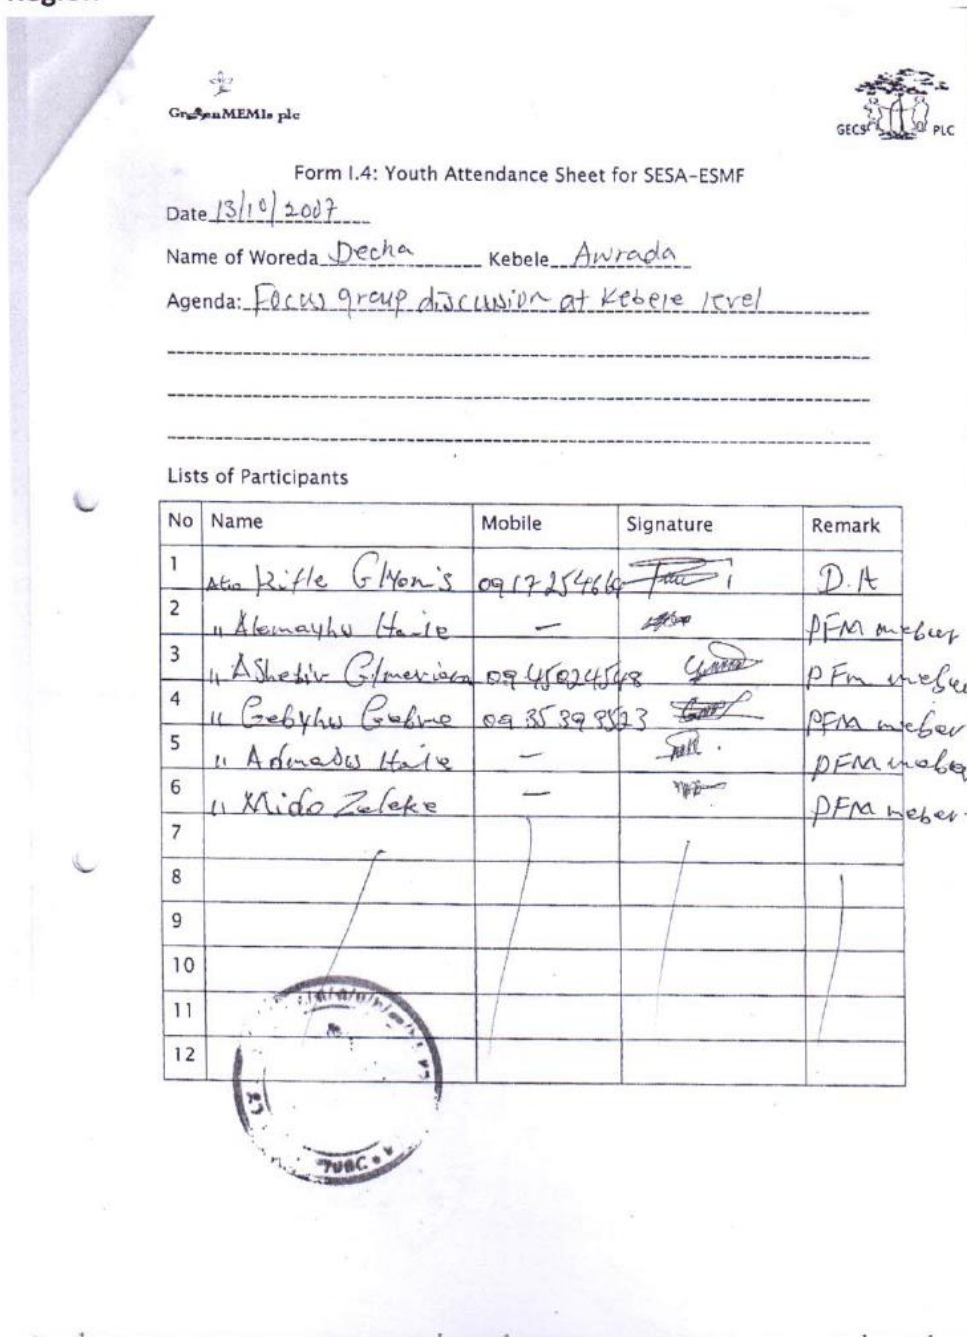 GreenMEMIs plc
GECS PLC
Form I.4: Youth Attendance Sheet for SESA-ESMF
Date 13/10/2007
Name of Woreda Decha Kebele Awrada
Agenda: Focus group discusion at Kebele level
Lists of Participants
No Name Mobile Signature Remark
1 Ato Kifle D.A
2 " Alemayhu Haile — PFM meber
3 " Ashebir 0945024548 PFM meber
4 " Gebyhu Gebre 0935399523 PFM meber
5 " Haile — PFM meber
6 " Mido Zeleke — PFM meber
7
8
9
10
11
12